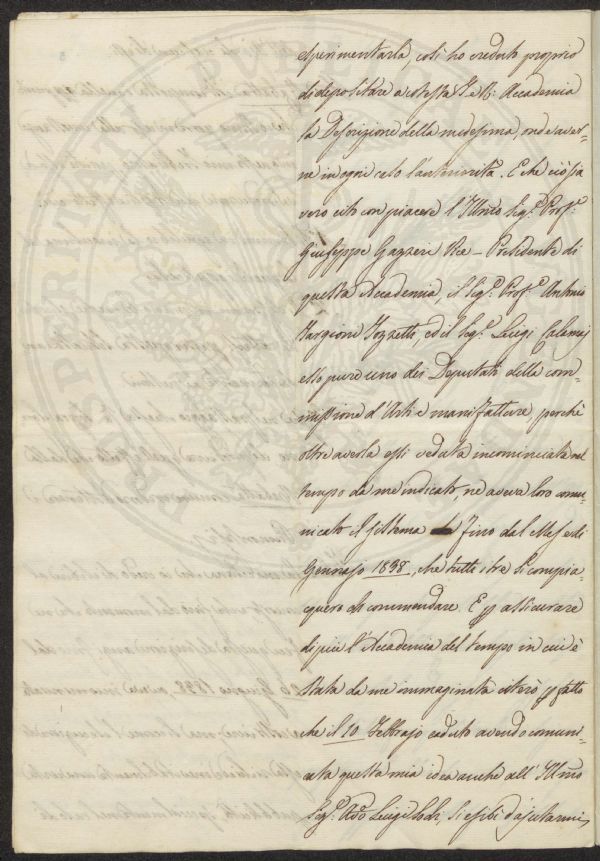 sperimentarla, così ho creduto proprio
di depositare a cotesta I. e R. Accademia
la Descrizione della medesima, onde aver-
ne in ogni caso l'anteriorità. E che ciò sia
vero cito con piacere l'Illmo Sigr. Profr.
Giuseppe Gazzeri Vice-Presidente di
questa Accademia, il Sigr. Profr. Antonio
Targioni Tozzetti, ed il Sigr. Luigi Calamaj
esso pure uno dei Deputati della com-
missione d'Arti e manifatture perchè
oltre averla essi veduta incominciata nel
tempo da me indicato, ne aveva loro comu-
nicato il sistema fino dal Mese di
Gennajo 1838, che tutti e tre si compia-
quero di commendare. E p assicurare
di più l'Accademia del tempo in cui è
stata da me immaginata citerò p fatto
che il 10 Febbrajo caduto avendo comuni-
cata questa mia idea anche all'Illmo
Sigr. Luigi, si esibì d'ajutarmi,
PROSPERITATI PUBLICAE